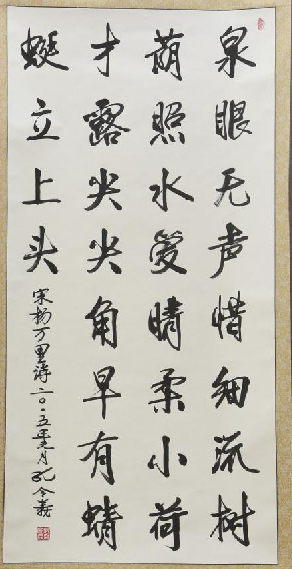 泉眼无声惜细流树
荫照水爱晴柔小荷
才露尖尖角早有蜻
蜓立上头
宋杨万里诗二〇一五年月孔令義